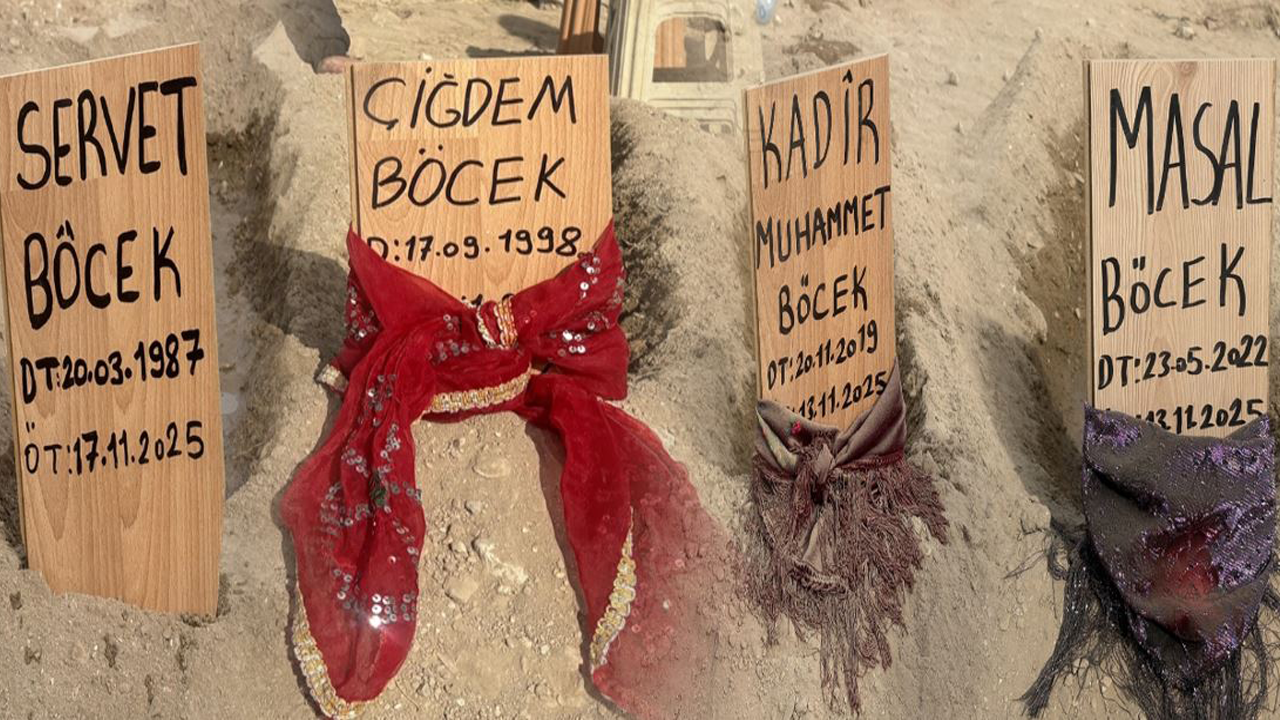 SERVET
BÖCEK
DT:20.03.1987
ÖT:17.11.2025
ÇİĞDEM
BÖCEK
D:17.09.1998
KADİR
MUHAMMET
BÖCEK
DT:20.11.2019
13.11.2025
MASAL
BÖCEK
DT:23.05.2022
13.11.2025